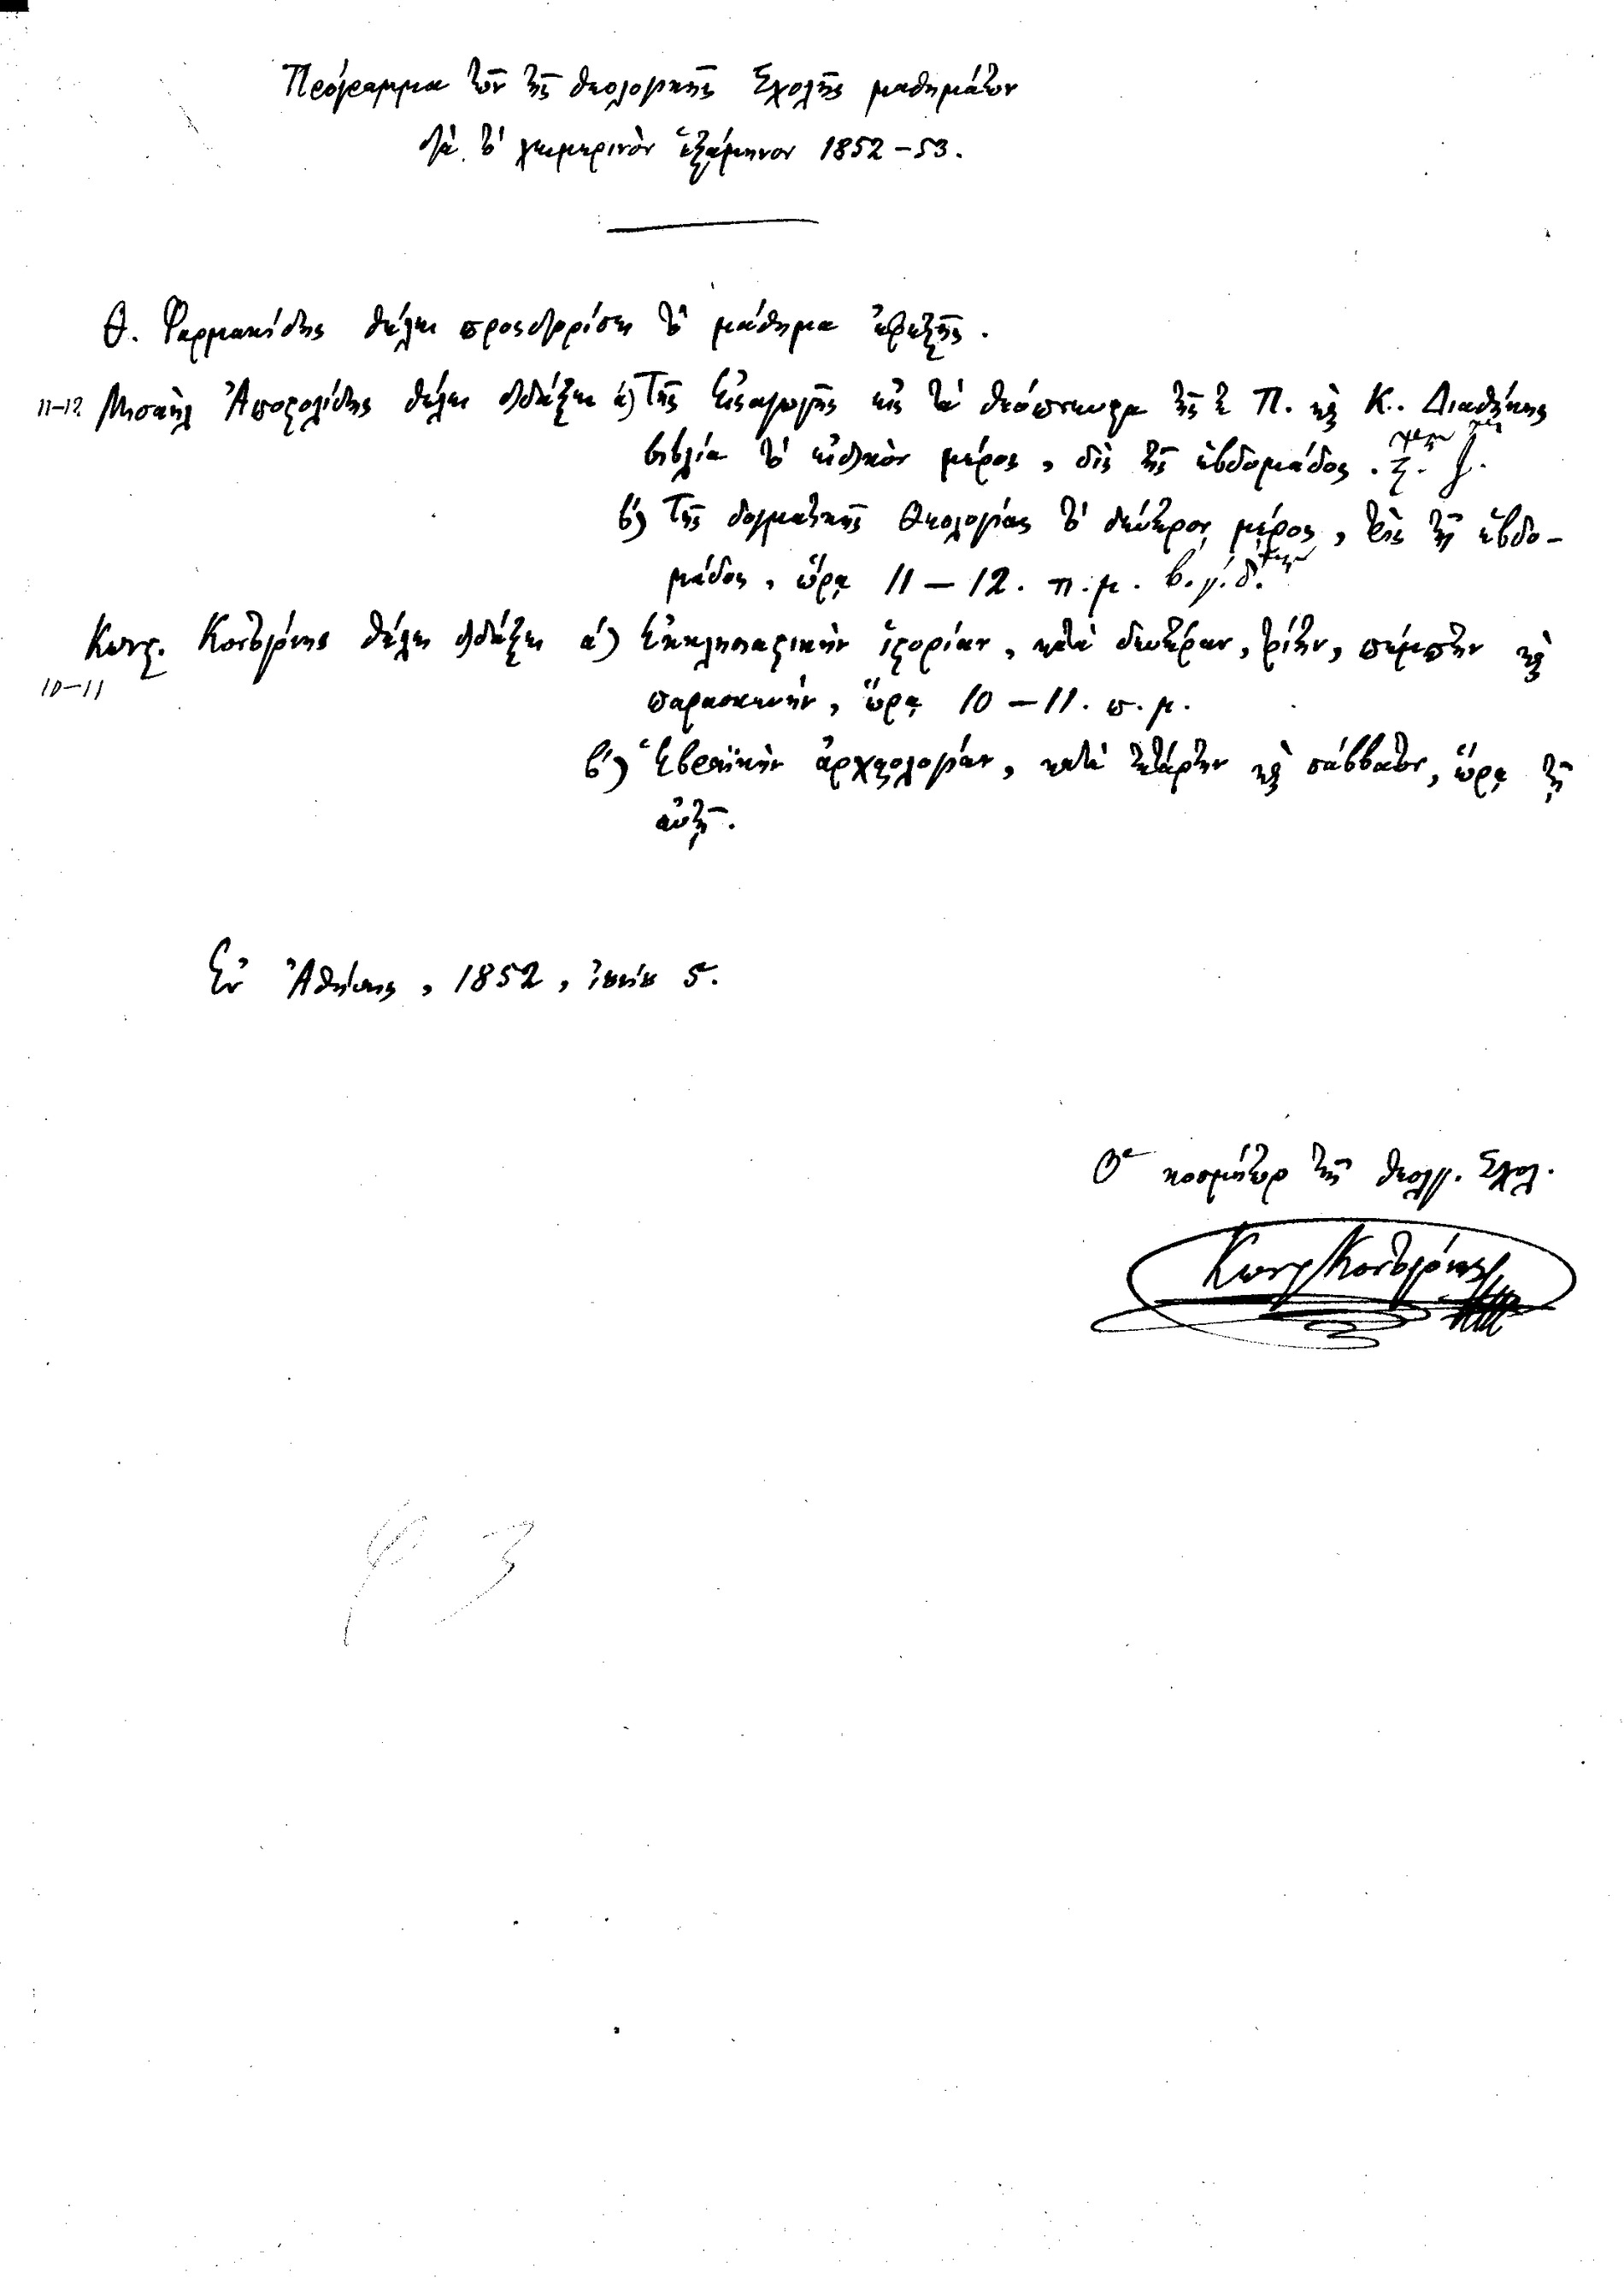 Πρόγραμμα τῶν τῆς θεολογικῆς Σχολῆς μαθημάτων
διὰ τὸ χειμερινὸν ἑξάμηνον 1852–53.
Θ. Φαρμακίδης θέλει προσδιορίσει τὸ μάθημα ἐφεξῆς.
11–12 Μισαὴλ Ἀποστολίδης θέλει διδάξει α΄) Τῆς Εἰσαγωγῆς εἰς τὰ θεόπνευστα τῆς Π. καὶ Κ. Διαθήκης
βιβλία τὸ εἰδικὸν μέρος, δὶς τῆς ἑβδομάδος.
β΄) Τῆς δογματικῆς Θεολογίας τὸ δεύτερον μέρος, τρὶς τῆς ἑβδο–
μάδος, ὥρᾳ 11–12. π.μ. β. γ. δ.
Κωνστ. Κοντογόνης θέλει διδάξει α΄) Ἐκκλησιαστικὴν ἱστορίαν, κατὰ δευτέραν, τρίτην, πέμπτην καὶ
10–11
παρασκευήν, ὥρᾳ 10–11. π.μ.
β΄) Ἑβραϊκὴν ἀρχαιολογίαν, κατὰ τετάρτην καὶ σάββατον, ὥρᾳ τῇ
αὐτῇ.
Ἐν Ἀθήναις, 1852, 5.
Ὁ κοσμήτωρ τῆς θεολογ. Σχολ.
Κωνστ Κοντογόνης
φ. 3